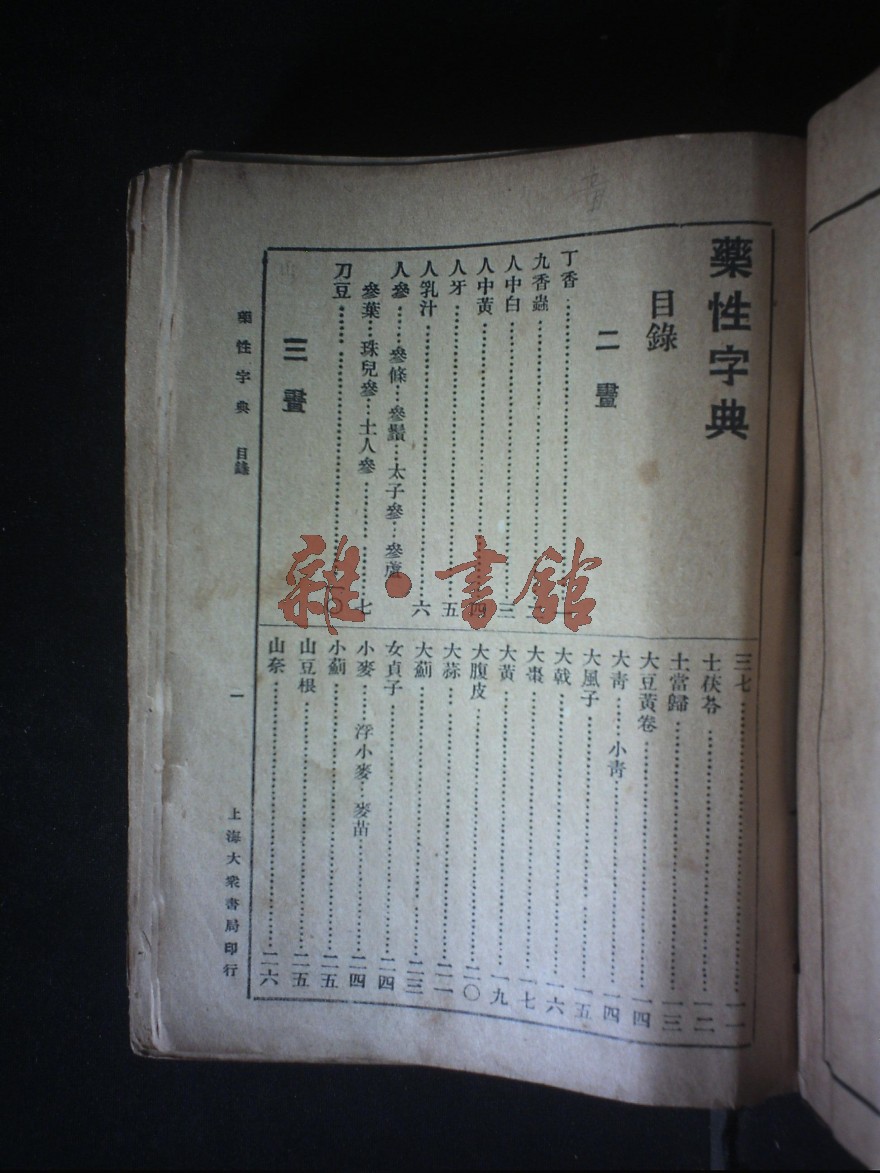 藥性字典
目錄
二畫
丁香⋯⋯一
九香蟲⋯⋯二
人中白⋯⋯三
人中黃⋯⋯四
人牙⋯⋯五
人乳汁⋯⋯六
人參⋯⋯參條⋯參鬚⋯太子參⋯參蘆
參葉⋯珠兒參⋯土人參⋯⋯七
刀豆⋯⋯
三畫
三七⋯⋯一一
土茯苓⋯⋯一二
土當歸⋯⋯一三
大豆黃卷⋯⋯一四
大青⋯⋯小青⋯⋯一四
大風子⋯⋯一五
大戟⋯⋯一六
大棗⋯⋯一七
大黃⋯⋯一九
大腹皮⋯⋯二〇
大蒜⋯⋯二一
大薊⋯⋯二三
女貞子⋯⋯二四
小麥⋯⋯浮小麥⋯麥苗⋯⋯二四
小薊⋯⋯二五
山豆根⋯⋯二五
山柰⋯⋯二六
藥性字典 目錄
一
上海大衆書局印行
雜·書館